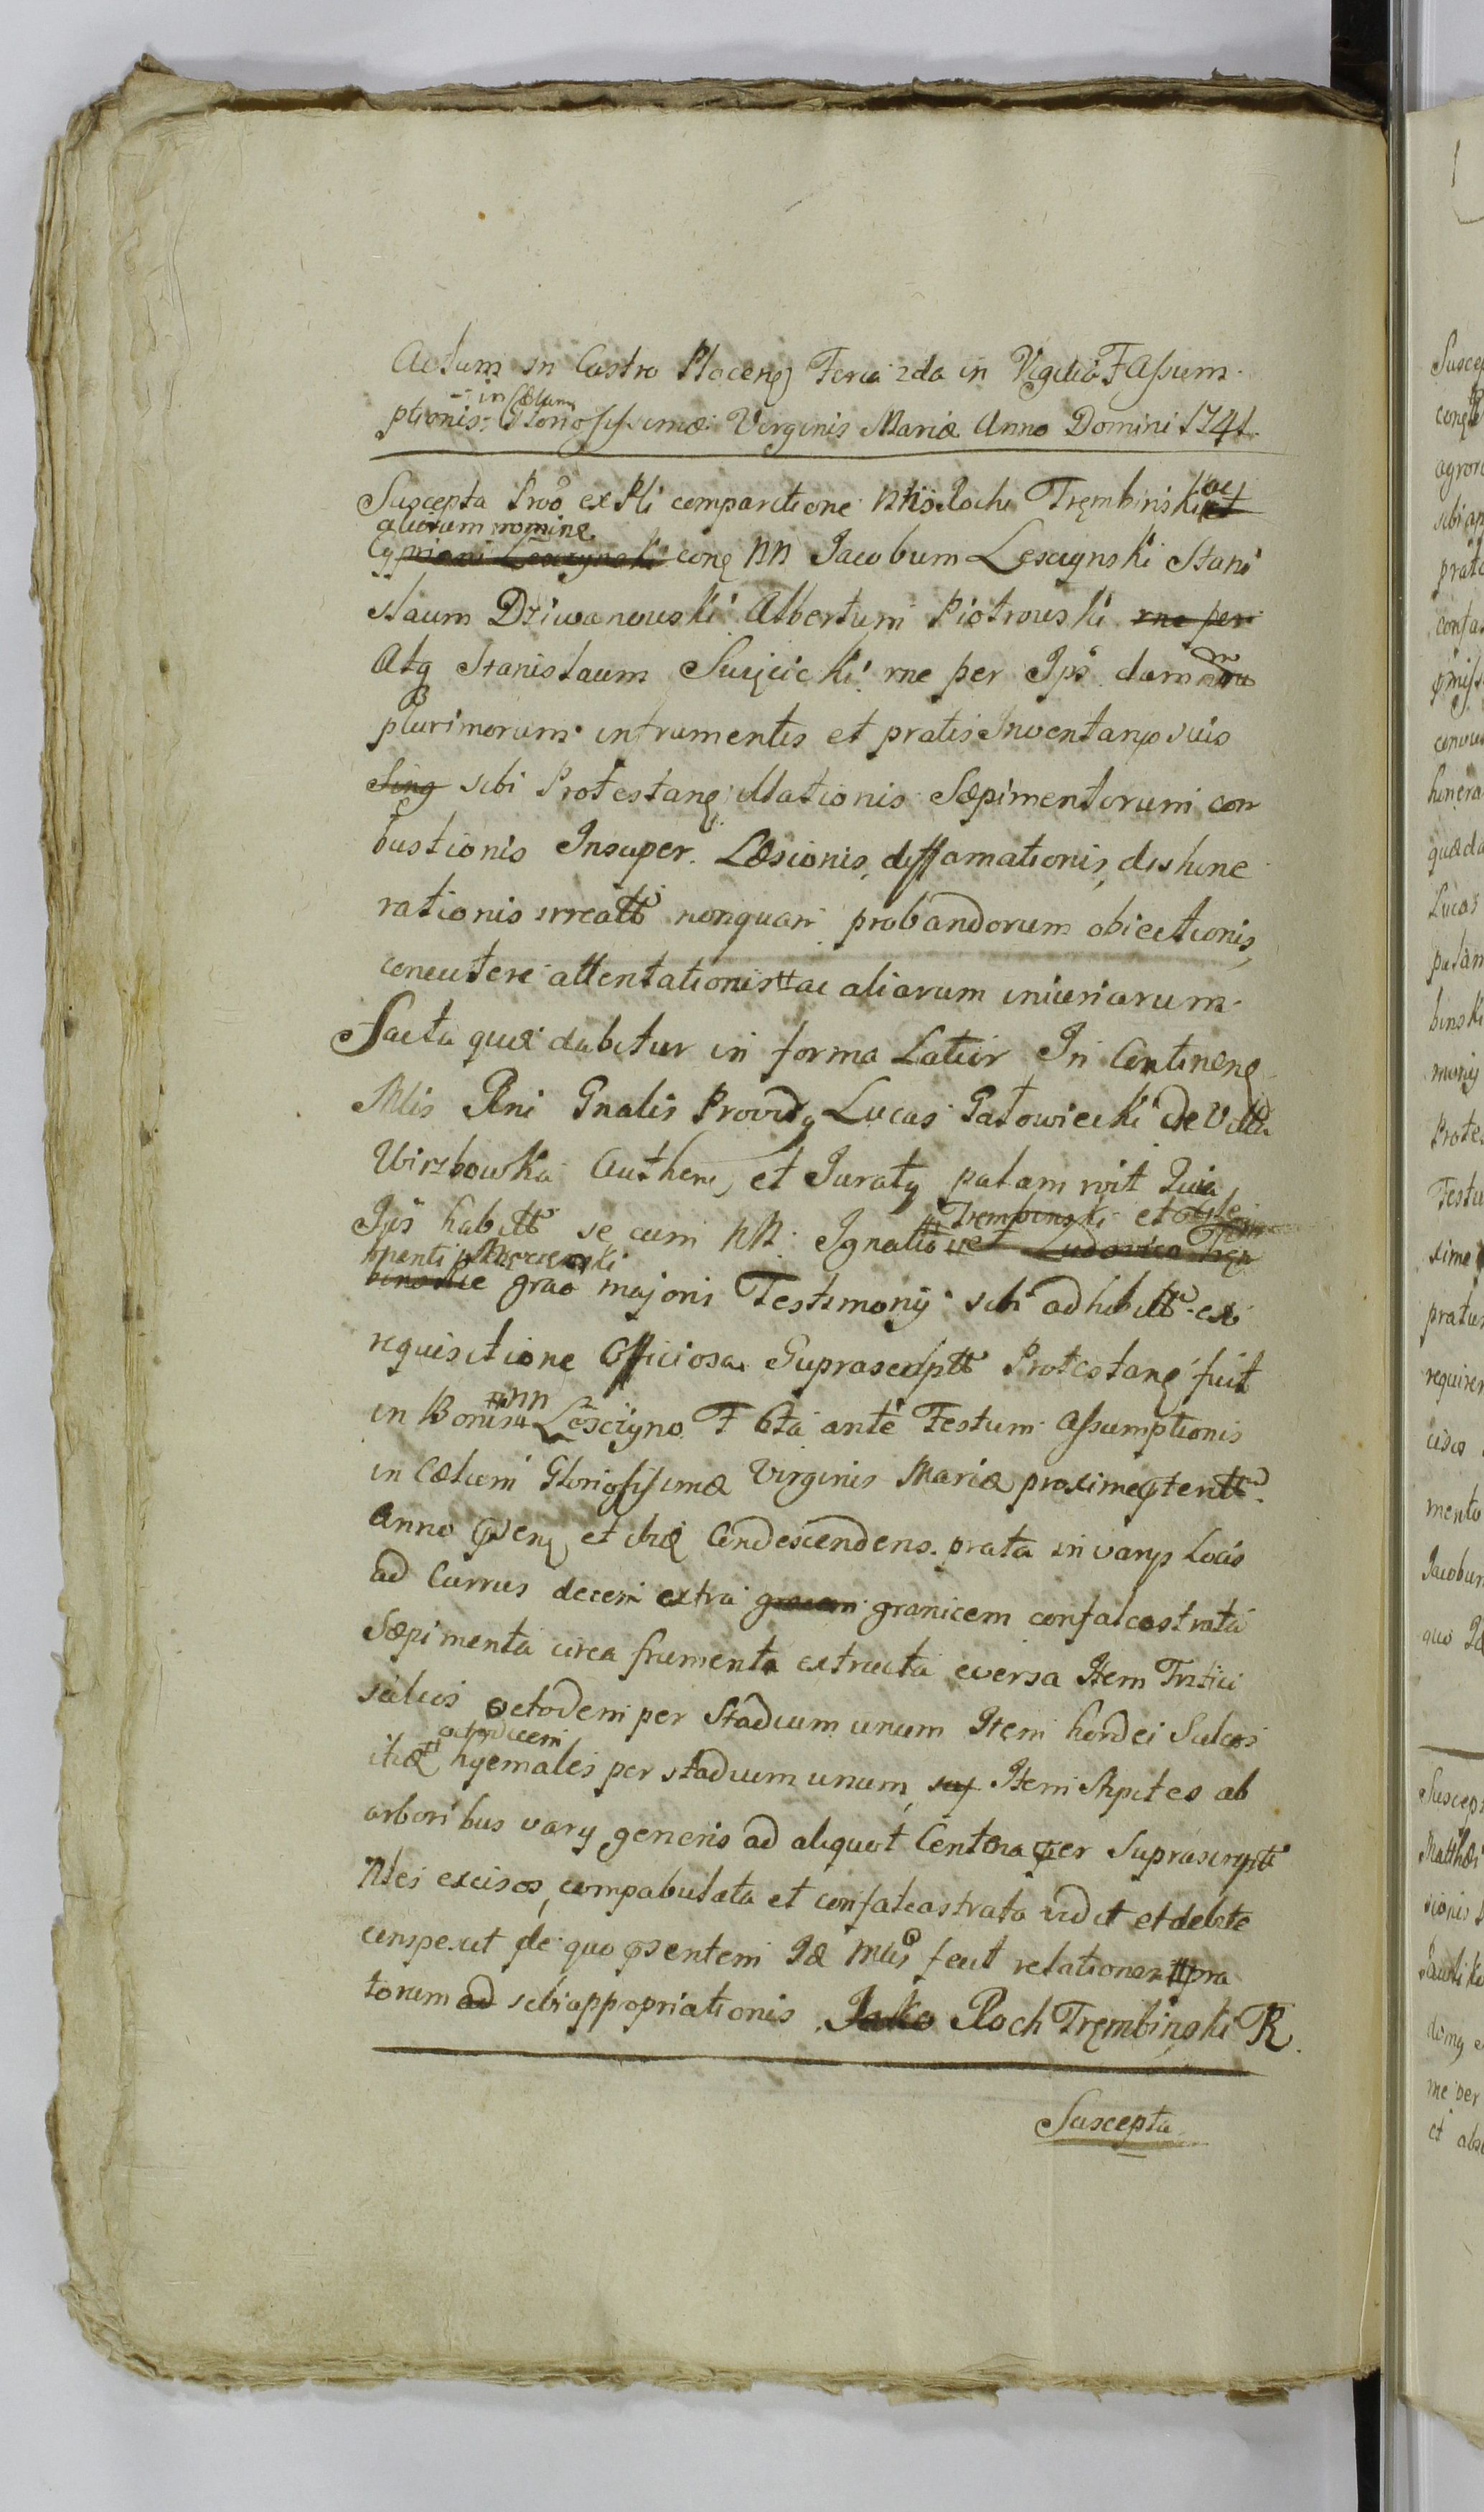 Actum in Castro Plocens Feria 2da in Vigilia F Assum
in Cælum
ptionis Gloriosissimæ Virginis Mariæ Anno Domini 1741
Suscepta Pro ex Pli comparitione Roche Trębinski ac et
aliorum nomine
Cypriani Leszczynski conę NN Jacobum Lesczynski Stani
slaum Dziwanowski Albertum Piotrowski rne per
Atq Stanislaum Suięcicki rne per Ips damnoru
plurimorum in frumentis et pratis Inventarys suis
sibi Protestanę illationis Sæpimentorum com
bustionis Insuper Læsionis, diffamationis, dishone
rationis irreatt nonquam probandorum obiectionis,
attentationis ac aliarum iniuriarum
Facta quæ dabitur in forma Latior In Continenę
Mlis Rni Gnalis Providq Lucas Gatowiecki de Villa
Wirzbowka Authen, et Juratq palam rvit Quia
Trembinski et
Ips habitt se cum NN Ignatio et Ludovico Trę
binskie grao majoris Testimony sibi adhibitt ex
requisitione Officiosa Suprascriptt Protestanę fuit
nn
in Bonis Lesczyno F 6ta ante Festum Assumptionis
in Cælum Gloriosissimæ Virginis Mariæ proxime
Anno et ibiq Condescendens prata in varys Locis
ad Currus decem extra granicem confalcastrata
Sæpimenta circa frumenta extructa eversa Item Tritici
sulcos octodem per Stadium unum Item hordei Sulcos
hyemales per stadium unum, Item Stipites ab
arboribus vary generis ad aliquot Centena per Suprascriptt
Nles excisos, compabulata et confalcastrata vidit et debite
conspexit de quo psentem Id Mlis fecit relationem pra
torum ad sibi appopriationis Jako Roch Trębinski R
Suscepta